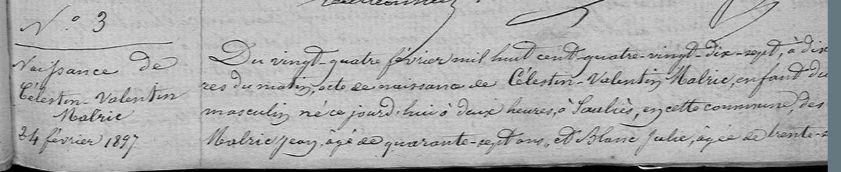 N.º 3
Naissance de
Célestin-Valentin
Malric
24 février 1897
Du vingt-quatre février mil huit cent-quatre-vingt-dix-sept, à dix
res du matin, acte de naissance de Célestin-Valentin Malric, enfant du
masculin né ce jourd'hui à deux heures, à Sauliès, en cette commune, des
Malric Jean, âgé de quarante-sept ans, et Blanc Julie, âgée de trente-